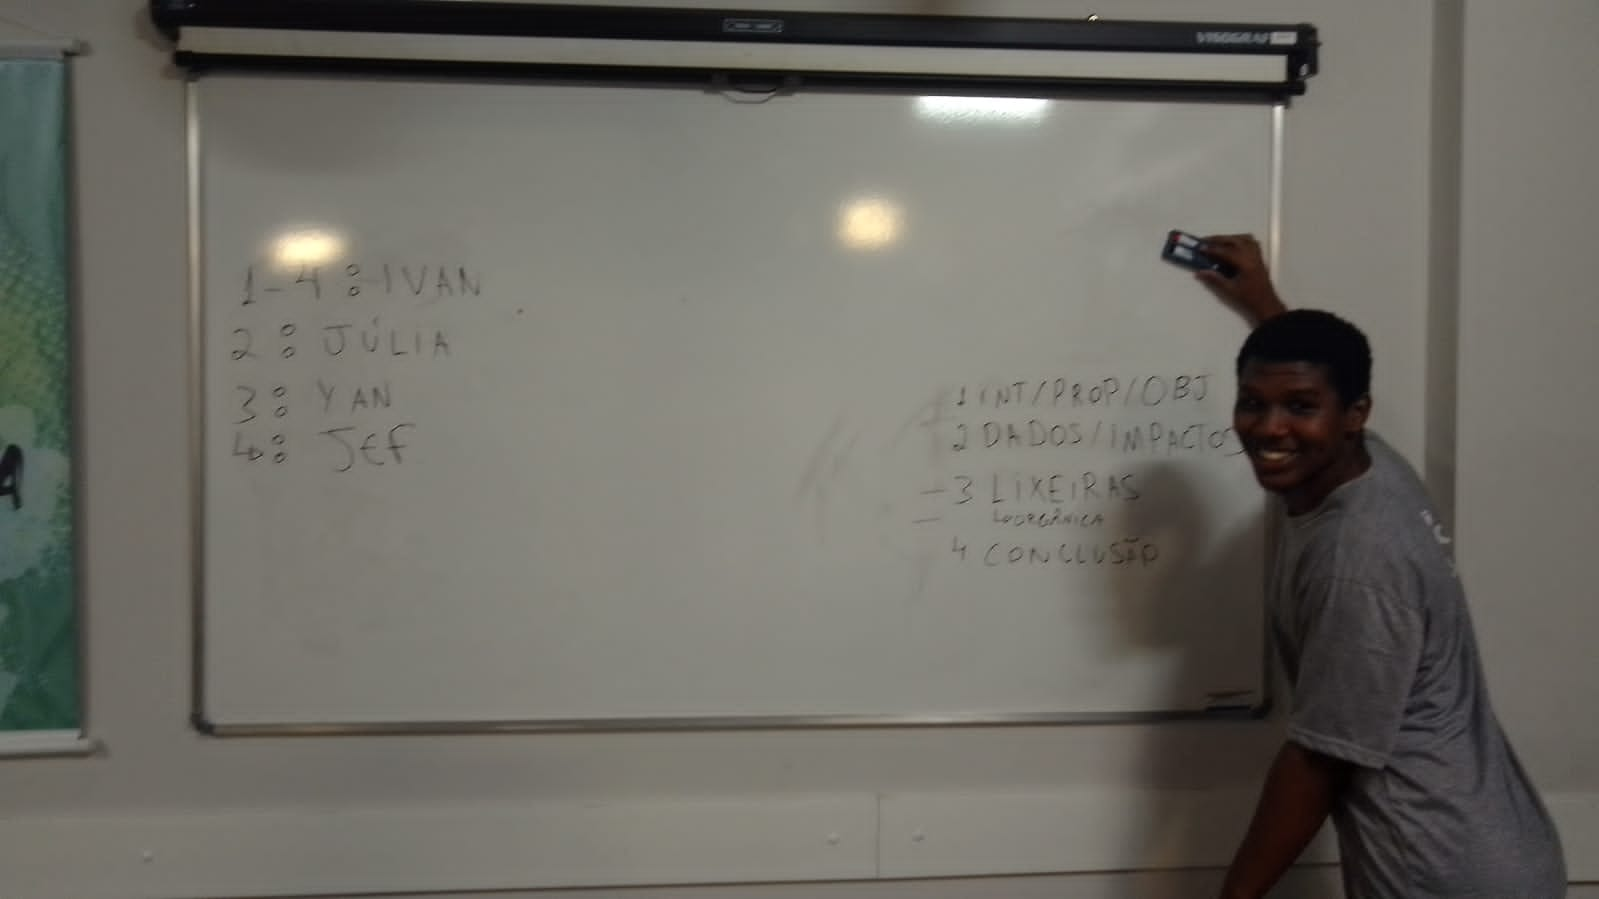 VISOGRAF
1-4:IVAN
2: JÚLIA
3: YAN
4: JEF
1 INT/PROP/OBJ
2 DADOS/IMPACTOS
- 3 LIXEIRAS
ORGÂNICA
4 CONCLUSÃO
A